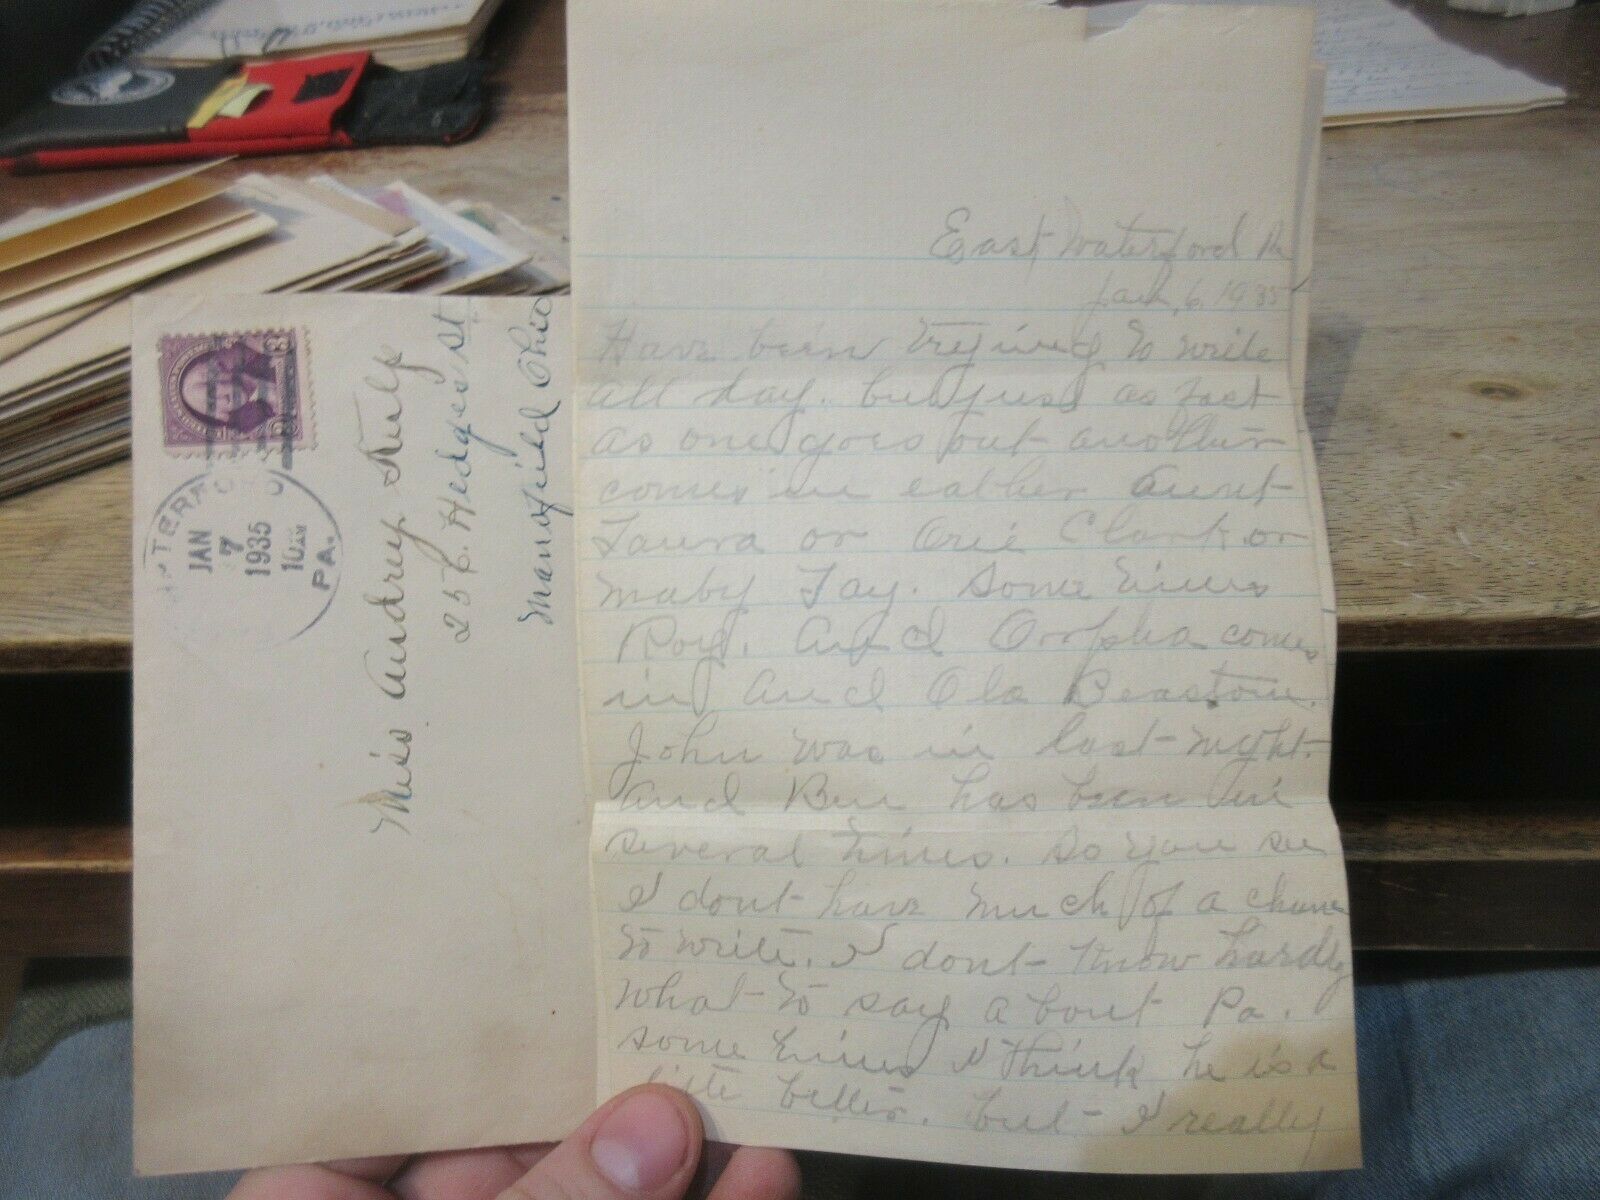 East Waterford Pa
Jan, 6, 1935
Have been trying to write
all day. but just as fast
as one goes out another
comes in eather Aunt
Laura or Orie Clark or
maby Fay. Some times
Roy. And Orpha comes
in And Ola Beastom.
John was in last night.
And Ben has been in
several times. So you see
I dont have much of a chance
to write. I dont know hardly
what to say about Pa.
some times I think he is a
little better. but I really
Miss Audrey Kulp
256 Hedges st
Mansfield Ohio
JAN
7
1935
10AM
PA.
3
3